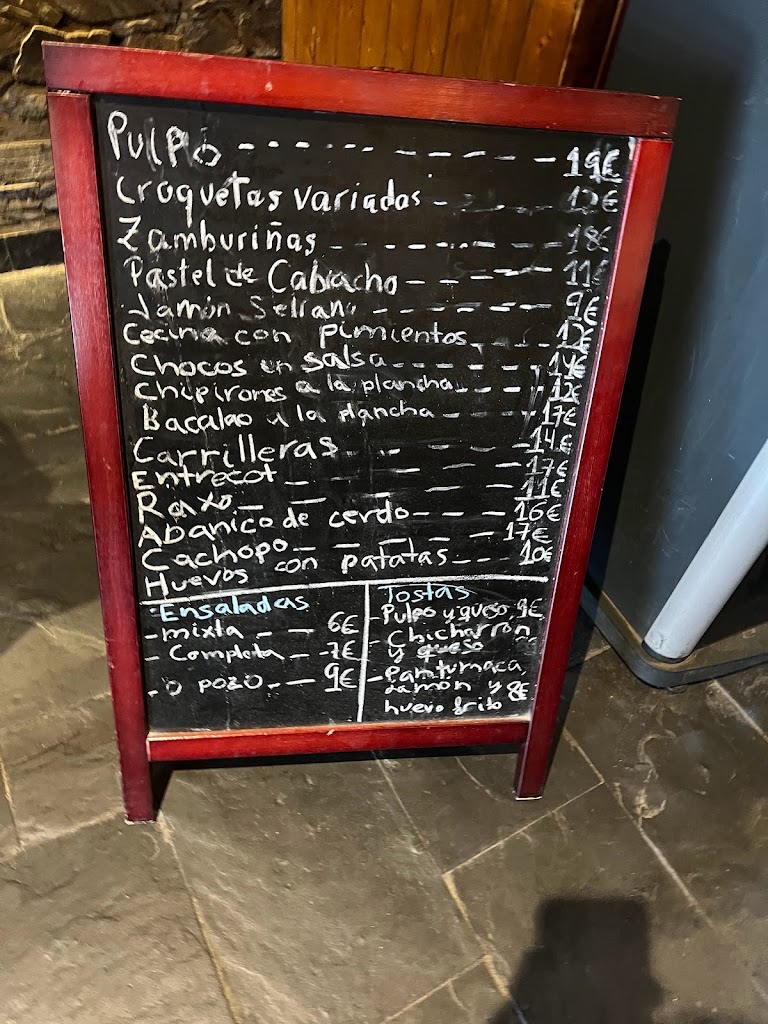 Pulpo - - - - - - - - 19€
Croquetas variadas - - - - 12€
Zamburiñas - - - - - - 18€
Pastel de Cabracho - - - - - 11€
Jamón Serrano - - - - - - 9€
Cecina con pimientos - - - 12€
Chocos en salsa - - - - - 14€
Chipirones a la plancha - - - - 12€
Bacalao a la plancha - - - - 17€
Carrilleras - - - - - 14€
Entrecot - - - - - - 17€
Raxo - - - - - - 11€
Abanico de cerdo - - - - 16€
Cachopo - - - - - 17€
Huevos con patatas - - - 10€
Ensaladas
- mixta - - - 6€
- Completa - - 7€
- O pozo - - - 9€
Tostas
- Pulpo y queso 9€
- Chicharrón
y queso
- Pantumaca,
Jamón y 8€
huevo frito